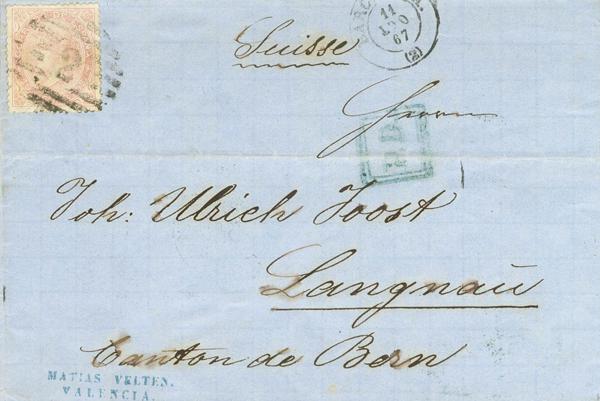 Suisse
11
67
(2)
Herrn
P.D.
Joh: Ulrich Joost
Langnau
Canton de Bern
MATIAS VELTEN.
VALENCIA.